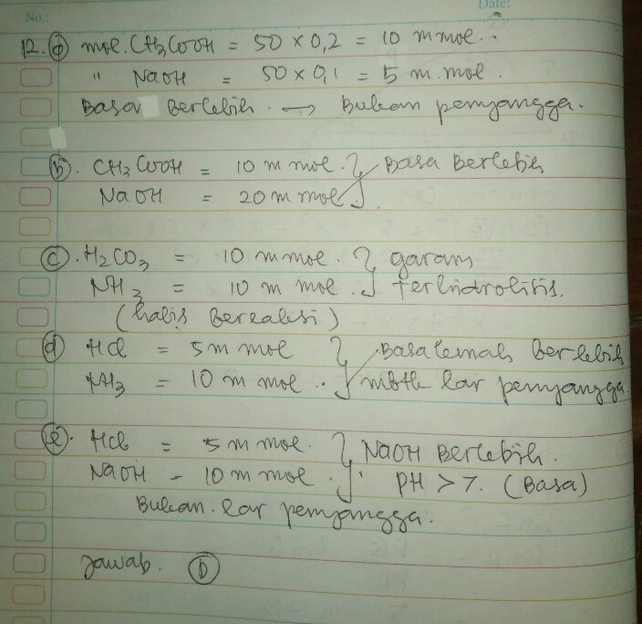 No.:
Date:
12. (a) mol. CH3COOH = 50 x 0,2 = 10 mmol.
" NaOH = 50 x 0,1 = 5 m.mol.
Basa Berlebih. → Bukan penyangga.
(b). CH3COOH = 10 m mol. } Basa Berlebih
NaOH = 20 m mol. }
(c). H2CO3 = 10 m mol. } garam
NH3 = 10 m mol. } terhidrolisis.
(habis bereaksi)
(d) HCl = 5 m mol } Basa lemah berlebih
NH3 = 10 m mol .. } lar penyangga
(e). HCl = 5 m mol. } NaOH Berlebih.
NaOH = 10 m mol. } PH > 7. (Basa)
Bukan. lar penyangga.
Jawab. (D)